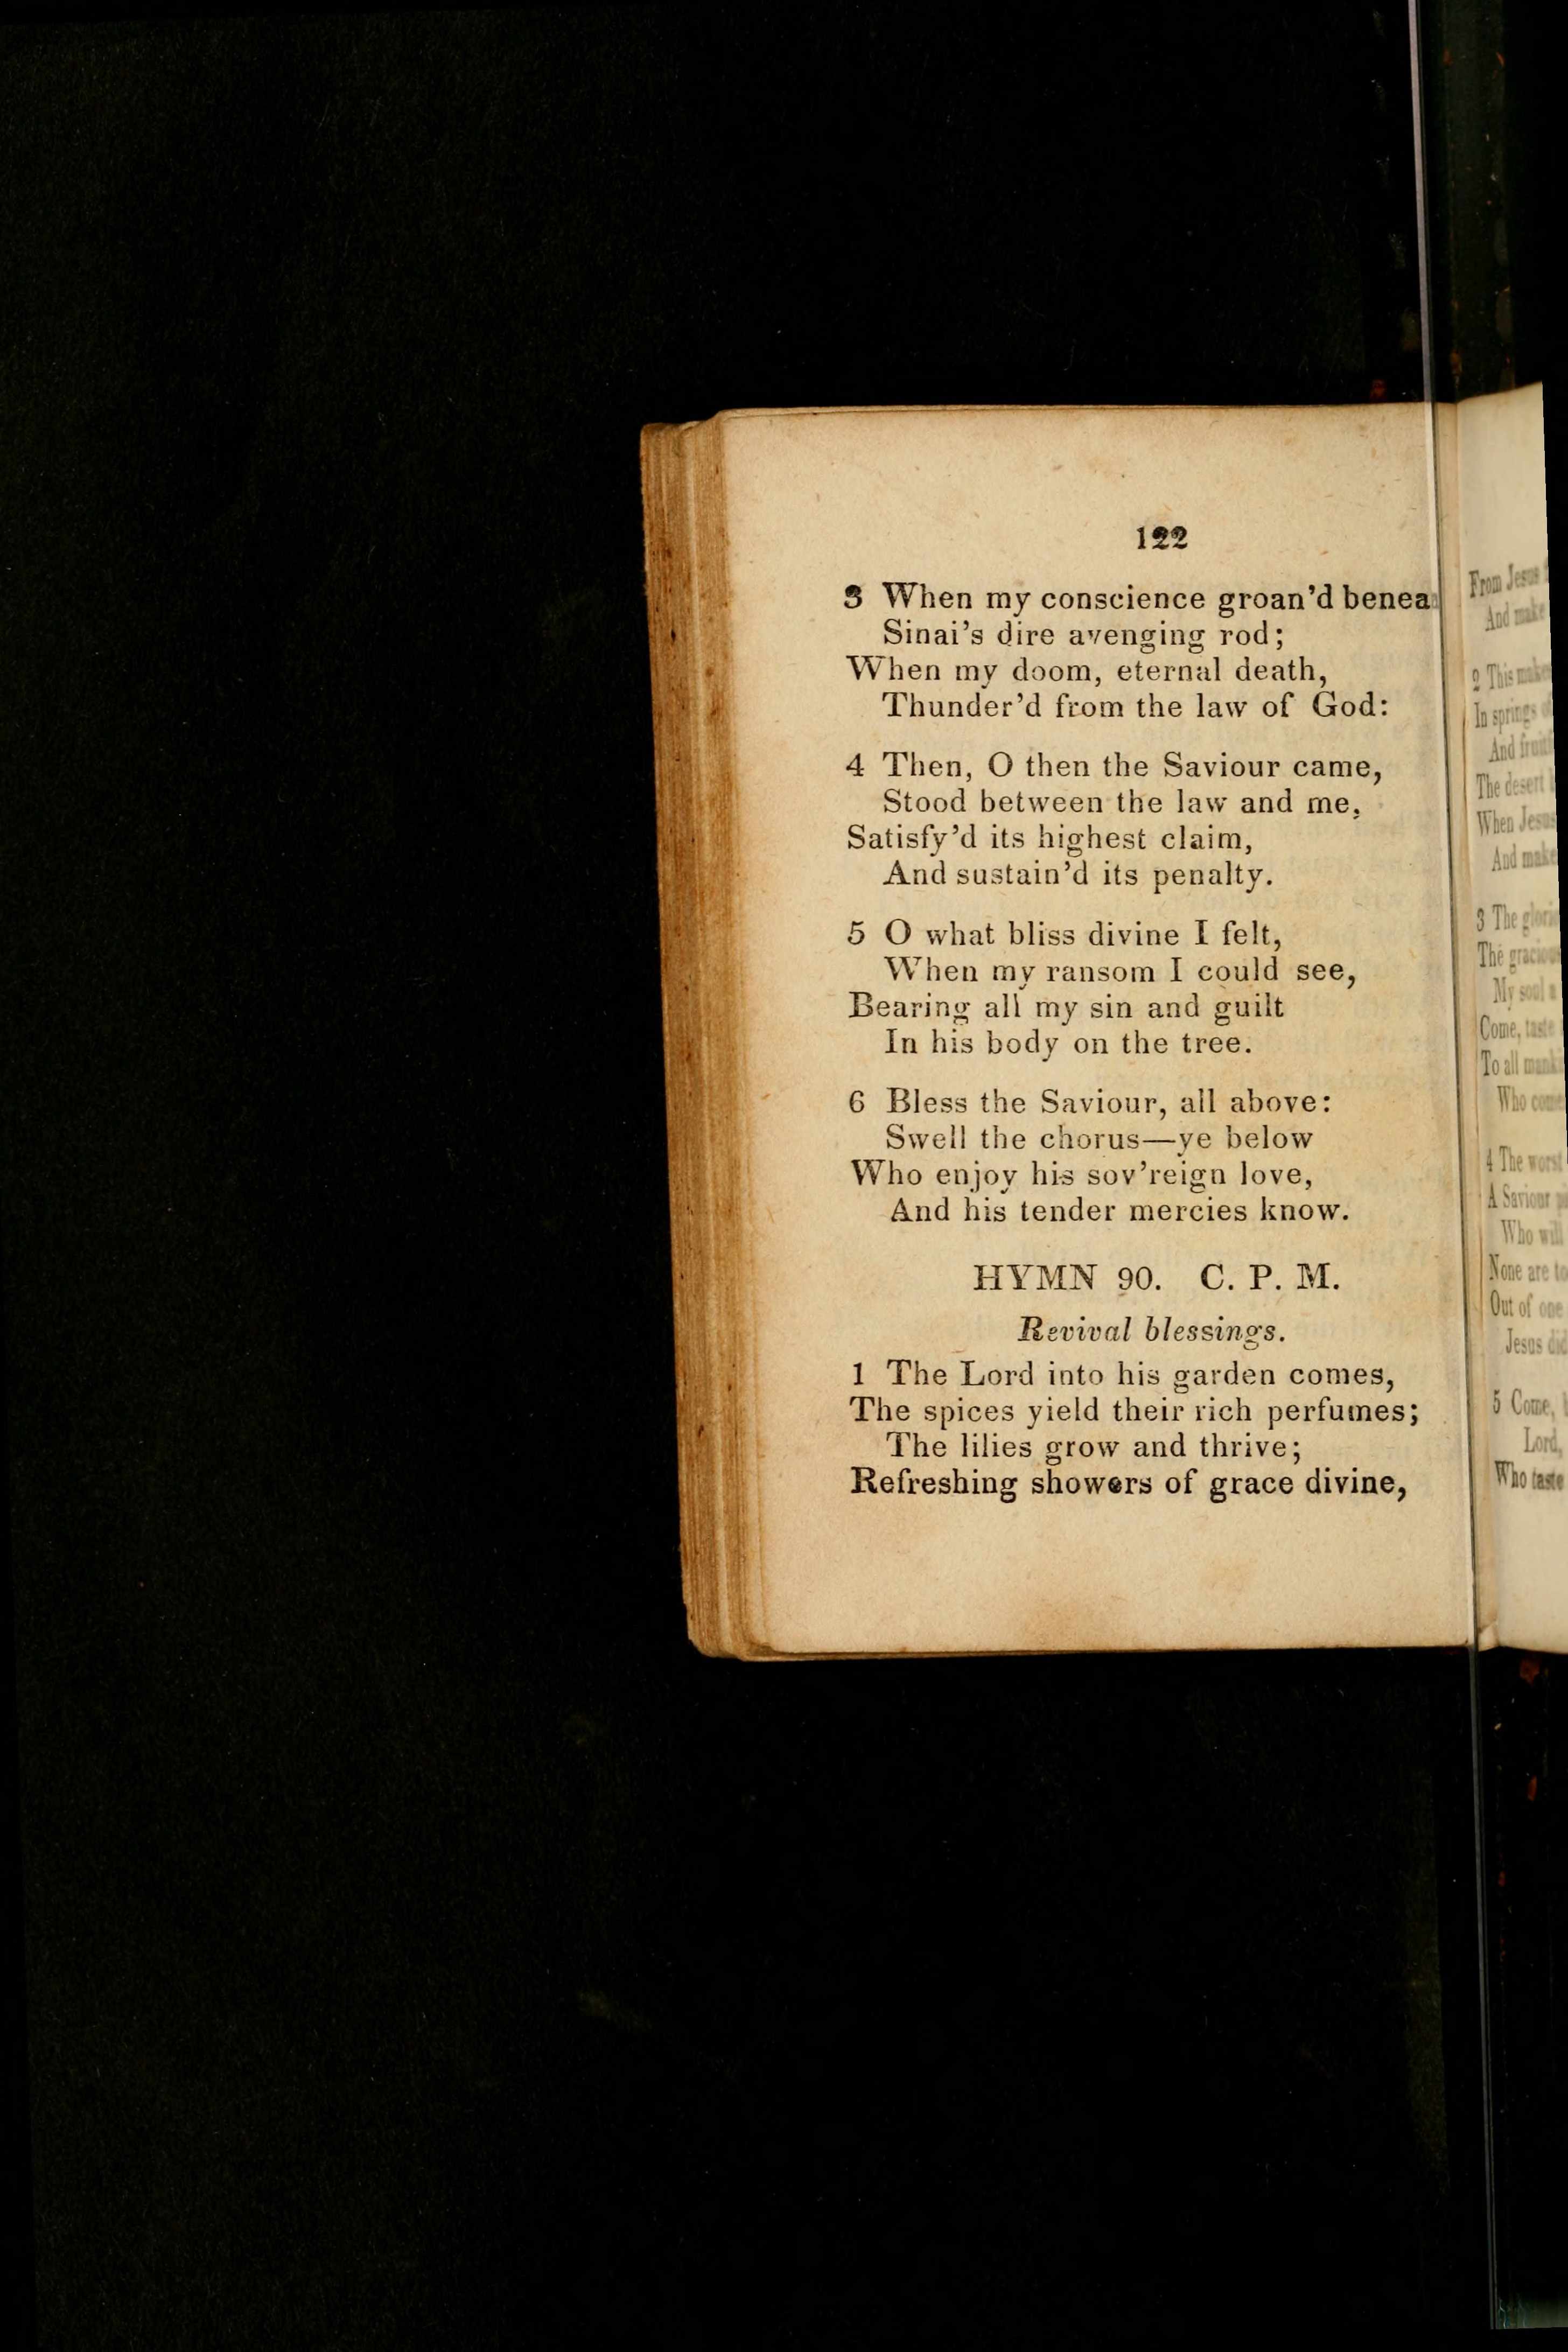 122
3 When my conscience groan'd benea
Sinai's dire avenging rod;
When my doom, eternal death,
Thunder'd from the law of God:
4 Then, O then the Saviour came,
Stood between the law and me,
Satisfy'd its highest claim,
And sustain'd its penalty.
5 O what bliss divine I felt,
When my ransom I could see,
Bearing all my sin and guilt
In his body on the tree.
6 Bless the Saviour, all above:
Swell the chorus—ye below
Who enjoy his sov'reign love,
And his tender mercies know.
HYMN 90. C. P. M.
Revival blessings.
1 The Lord into his garden comes,
The spices yield their rich perfumes;
The lilies grow and thrive;
Refreshing showers of grace divine,
From Jesus
And make
2 This
In springs
And
The desert
When Jesus
And make
3 The
The
My soul
Come,
To all
Who
4 The worst
A Saviour
Who
None are to
Out of one
Jesus did
5 Come,
Lord,
Who taste